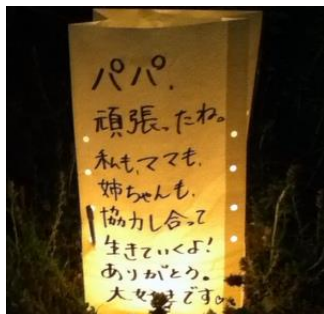 パパ、
頑張ったね。
私も、ママも、
姉ちゃんも、
協力し合って
生きていくよ!
ありがとう。
大好きです